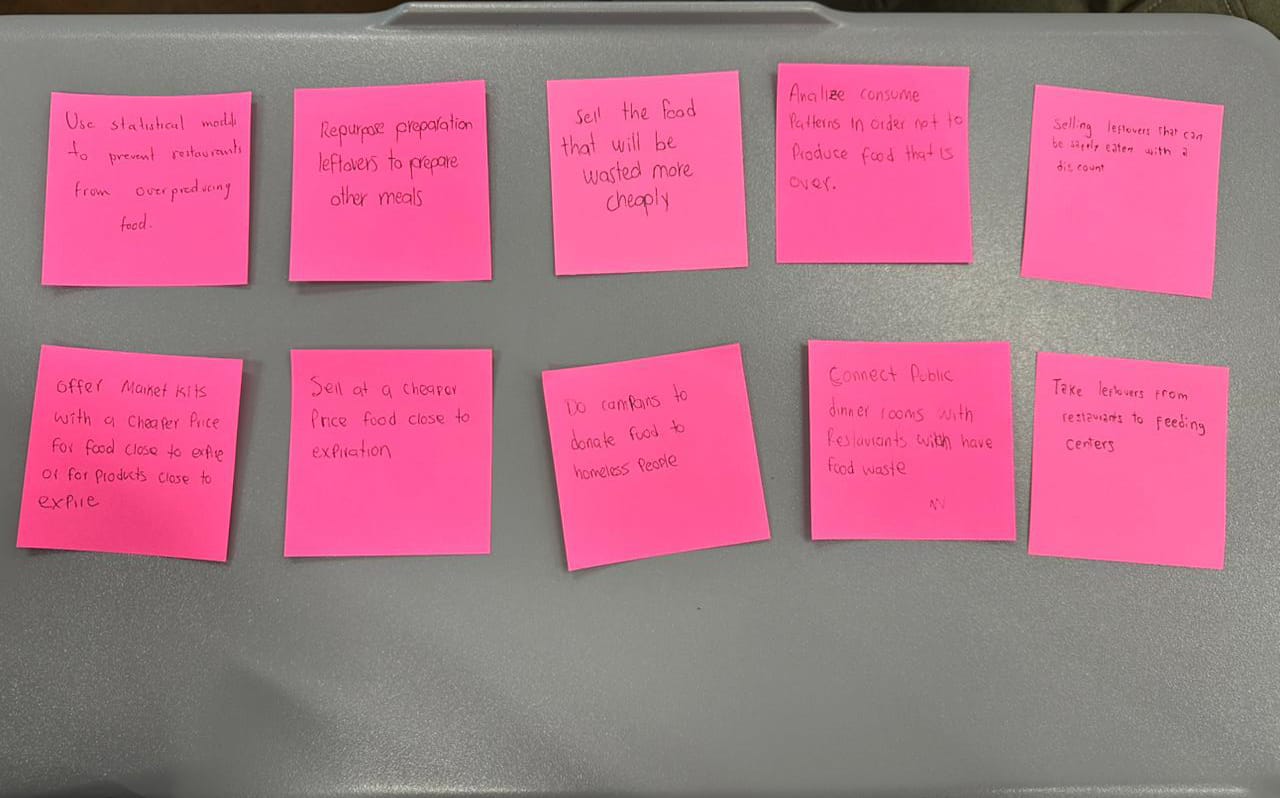 Use statistical models
to prevent restaurants
from overproducing
food.
Repurpose preparation
leftovers to prepare
other meals
Sell the food
that will be
wasted more
cheaply
Analize consume
Patterns in order not to
Produce food that is
over.
Selling leftovers that can
be safely eaten with a
discount
Offer Market Kits
with a cheaper Price
for food close to expire
or for products close to
expire
Sell at a cheaper
Price food close to
expiration
Do campains to
donate food to
homeless people
Connect Public
dinner rooms with
Restaurants with have
food waste
Take leftovers from
restaurants to feeding
centers